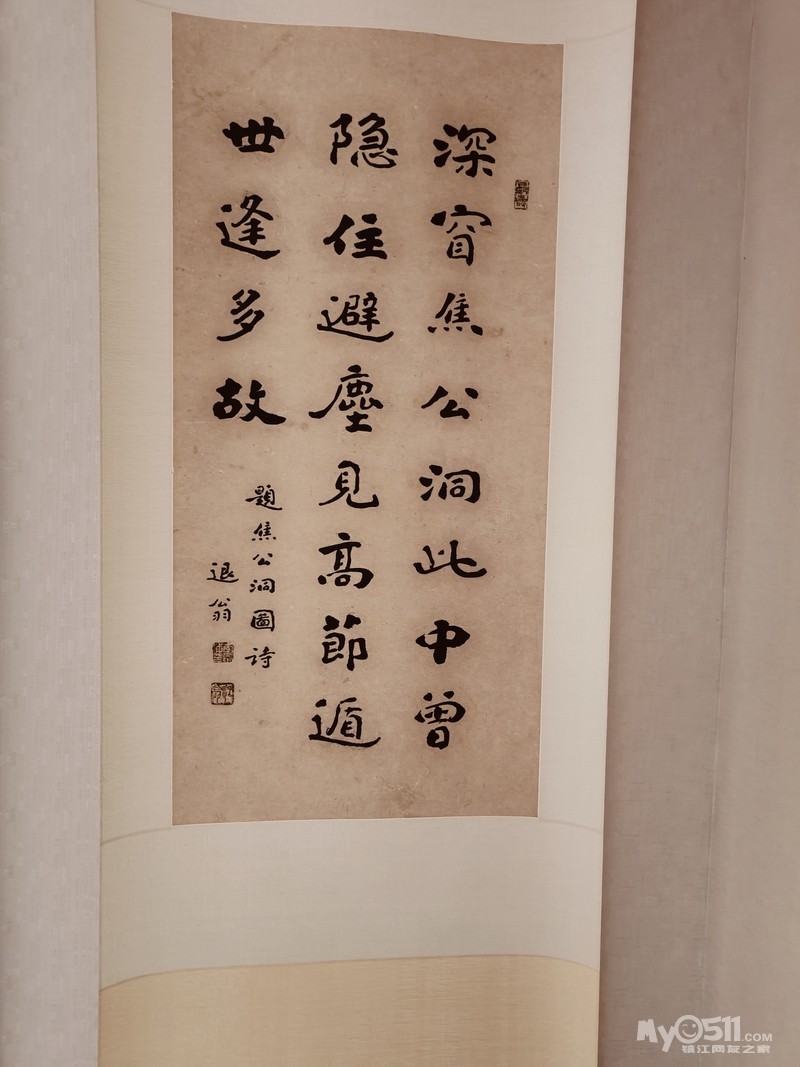 深窅焦公洞此中曾
隐住避塵見高節遁
世逢多故
題焦公洞圖詩
退翁
My0511.COM
镇江网友之家